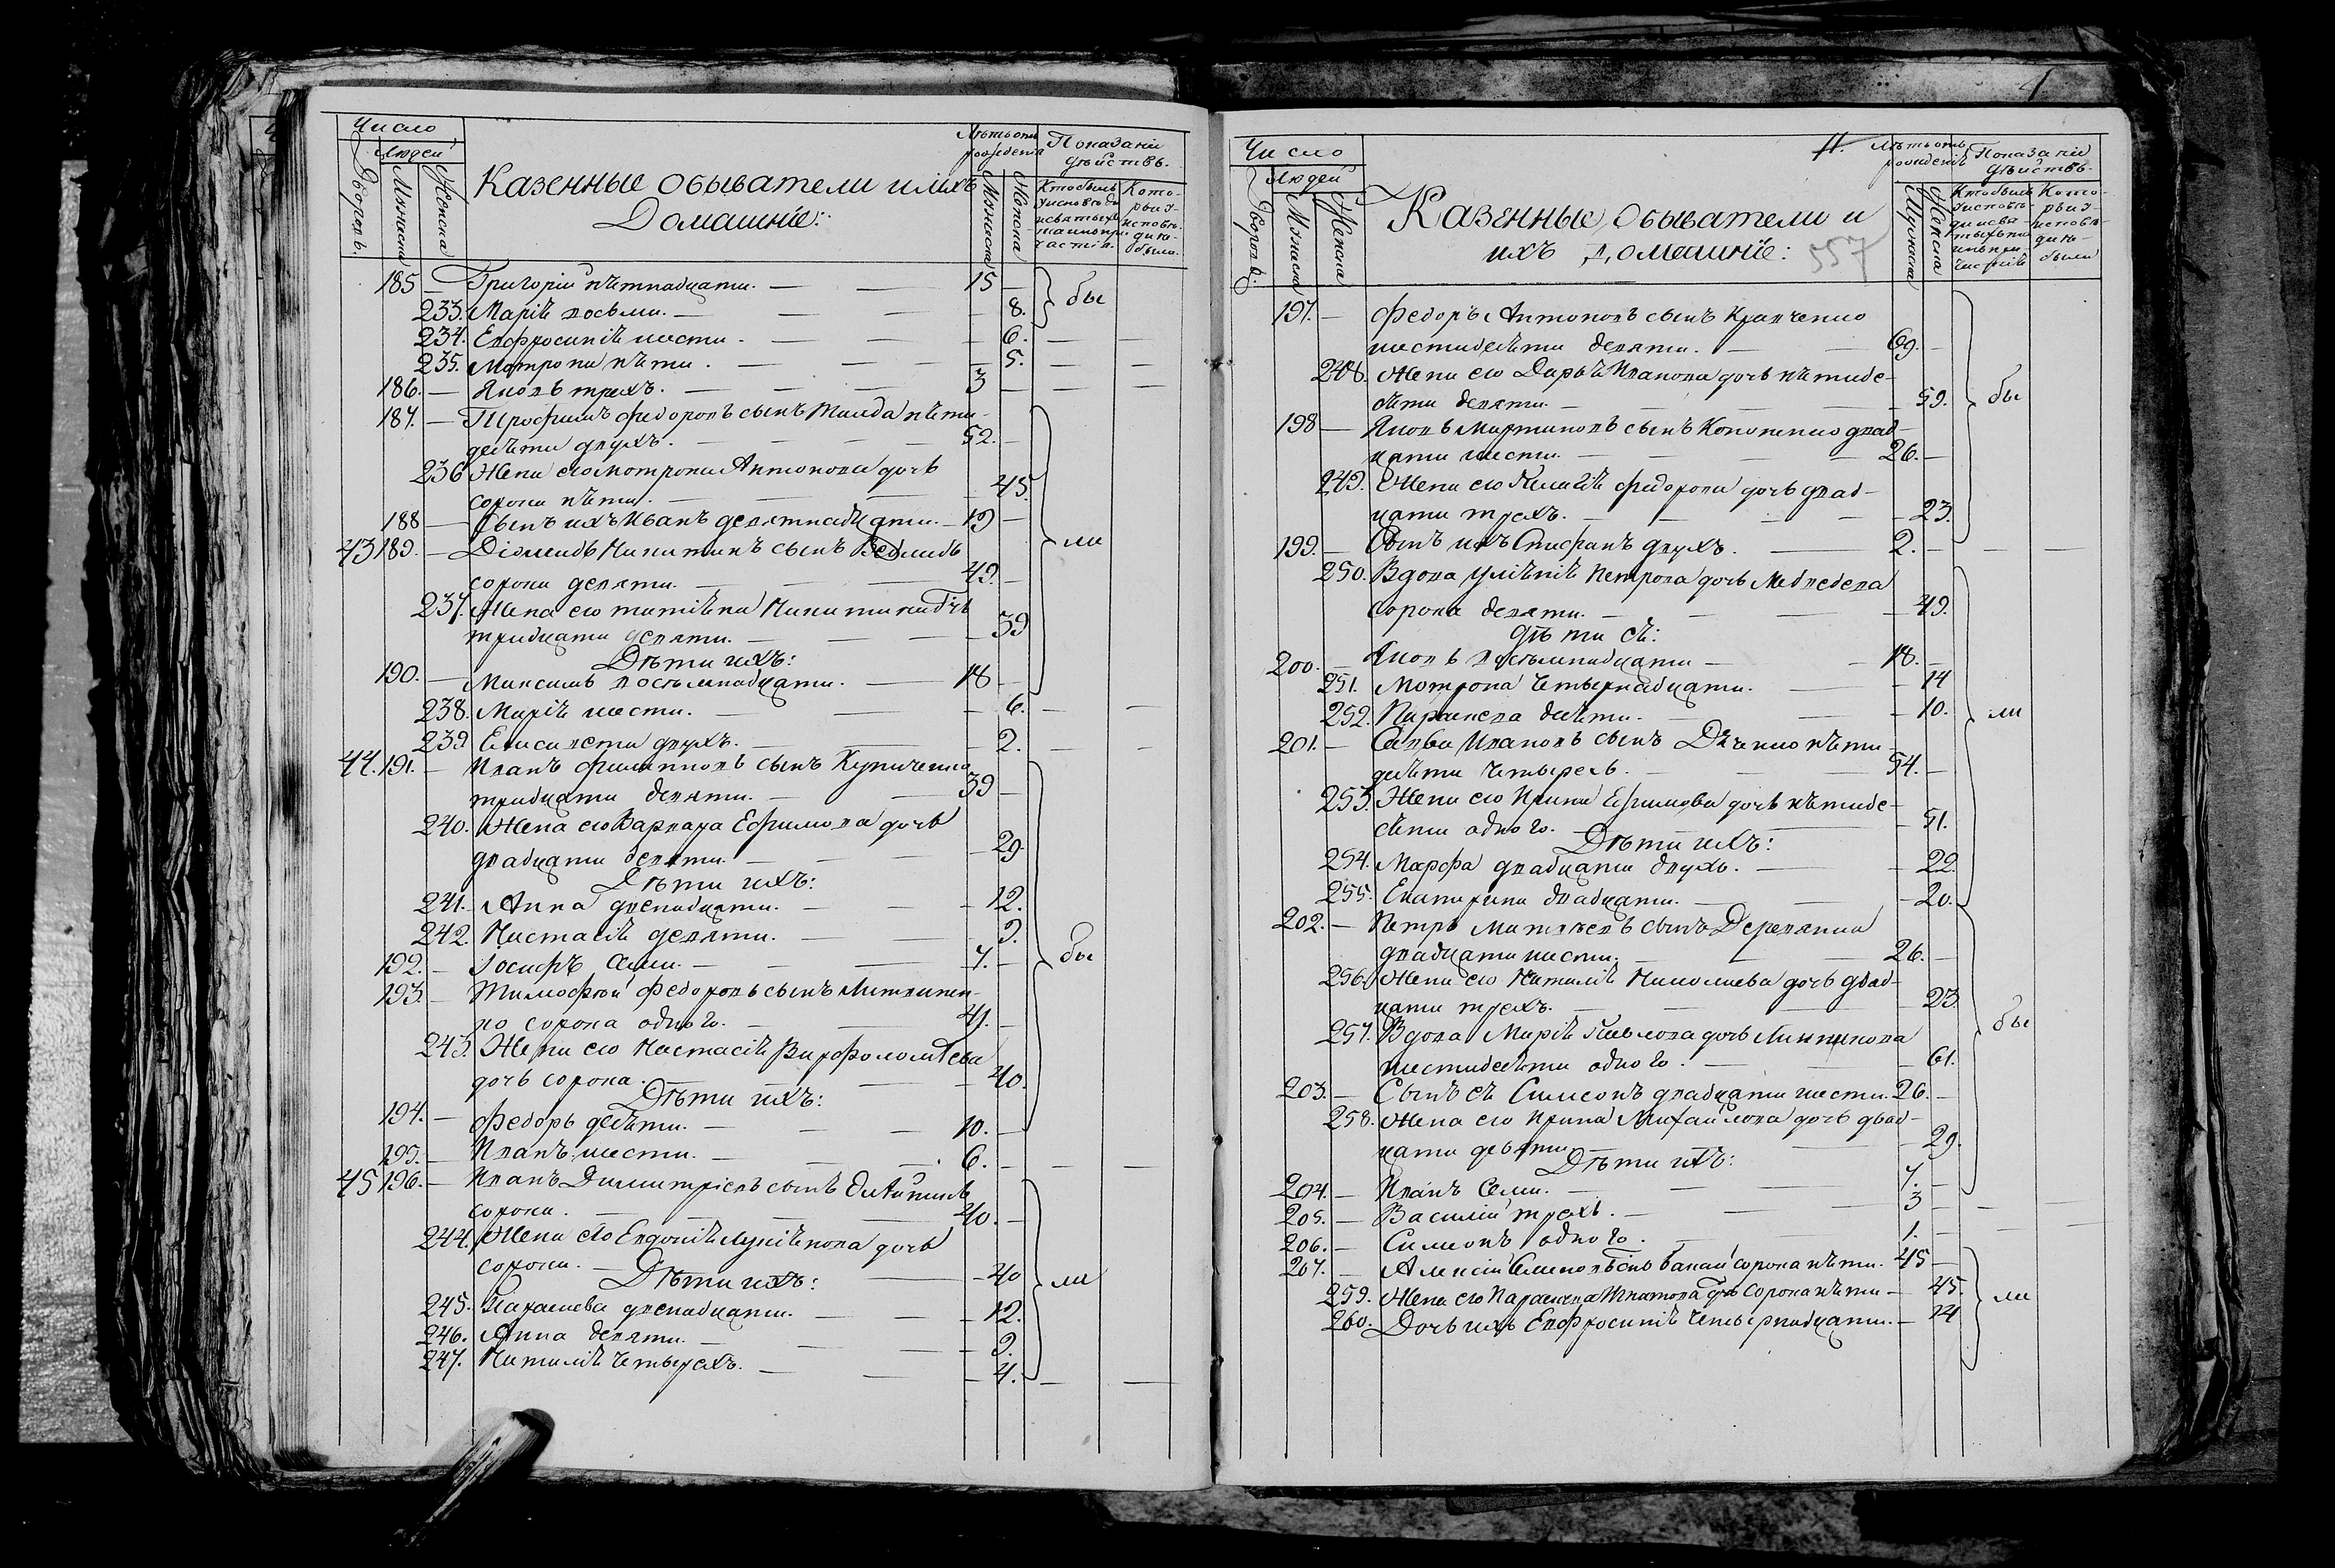 Число
Людей
Дворовъ.
Мужеска
Женска
Казенные Обыватели и ихъ
Домашніе:
Лѣтъ отъ
рожденія
Мужеска
Женска
Показаніи
дѣйствъ.
Которыи у исповѣди не были.
185 — Григорій пѣтнадцати. — 15 —
бы
233. Маріѣ восьми. — 8.
234. Евфросиніѣ шести. — 6. —
235. Мотрона пѣти. — 5. — —
186. — Яковъ трехъ. — 3 — — —
187. — Трофимъ Федоровъ сынъ пѣти-
десѣти двухъ. — 52. —
236 Жена его Мотрона Антонова дочь
сорока пѣти. — 45.
188 — Сынъ ихъ Иванъ девѣтнадцати. — 19 —
ли
43 189. — Діомидъ Никитинъ сынъ
сорока девяти. — 49. —
237. Жена его Никитина дочь
тридцати девяти. — 39
Дѣти ихъ:
190. — Максимъ восьмнадцати. — 18 —
238. Маріѣ шести. — 6. — —
239 Елисавета двухъ. — 2. — —
44. 191. — Иванъ Филипповъ сынъ
тридцати девяти. — 39 —
240. Жена его Варвара Ефимова дочь
двадцати девяти. — 29.
Дѣти ихъ:
241. Анна двенадцати. — 12.
242. Настасіѣ девяти. — 9.
бы
192. — Іосифъ семи. — 7. —
193. — Тимофей Федоровъ сынъ Литвинен-
ко сорока одного. — 41. —
243. Жена его Настасіѣ Варфоломѣева
дочь сорока. — 40.
Дѣти ихъ:
194. — Федоръ десѣти. — 10. —
195. — Иванъ шести. — 6. — — —
45 196. — Иванъ Димитріевъ сынъ
сорока. — 40. —
244. Жена его Евдокіѣ Лукіѣнова дочь
сорока. — 40
ли
Дѣти ихъ:
245. Параскева двенадцати. — 12.
246. Анна девяти. — 9.
247. Наталіѣ четырехъ. — 4. — —
Число
Людей
Дворовъ.
Мужеска
Женска
Казенные Обыватели и
ихъ домашніе:
557
Лѣтъ отъ
рожденіѣ
Мужеска
Женска
Показаніи
дѣйствъ.
197. — Федоръ Антоновъ сынъ Кравченко
шестидесѣти девяти. — 69. —
248. Жена его Дарьѣ Иванова дочь пѣтиде-
сѣти девяти. — 59.
бы
198 — Яковъ Мартиновъ сынъ Кононенко двад-
цати шести. — 26. —
249. Жена его Федорова дочь двад-
цати трехъ. — 23.
199. — Сынъ ихъ Стефанъ двухъ. — 2. — —
250. Вдова Уліѣніѣ Петрова дочь Медведева
сорока девяти. — 49.
Дѣти еѣ:
200. — Яковъ восьмнадцати — 18. —
251. Мотрона четырнадцати. — 14
252. Параскева десѣти. — 10.
ли
201. — Савва Ивановъ сынъ Дѣченко пѣти
десѣти четырехъ. — 54. —
253. Жена его Ирина Ефимова дочь пѣтиде-
сѣти одного. — 51.
Дѣти ихъ:
254. Марфа двадцати двухъ. — 22.
255. Екатерина двадцати. — 20.
202. — Петръ Матвѣевъ сынъ Деревянка
двадцати шести. — 26. —
256. Жена его Наталіѣ Николаева дочь двад-
цати трехъ. — 23
бы
257. Вдова Маріѣ Павлова дочь Литвинова
шестидесѣти одного. — 61.
203. — Сынъ еѣ Симеонъ двадцати шести. 26. —
258. Жена его Ирина Михайлова дочь двад-
цати девяти. — 29.
Дѣти ихъ:
204. — Иванъ семи. — 7. —
205. — Василій трехъ. — 3 — — —
206. — Симеонъ одного. — 1. — — —
207. — Алексій Семеновъ сынъ сорока пѣти. 45 —
259. Жена его Параскева Игнатова дочь сорока пѣти — 45.
ли
260. Дочь ихъ Евфросиніѣ четырнадцати. — 14